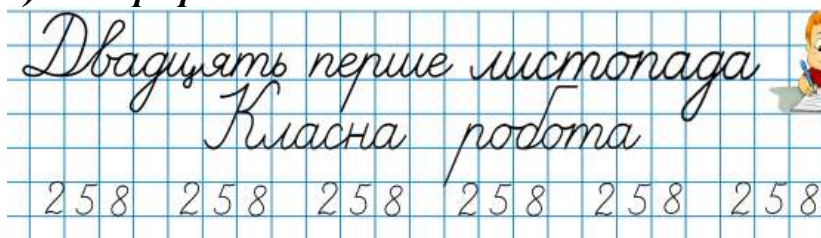 Двадцять перше листопада
Класна робота
258 258 258 258 258 258